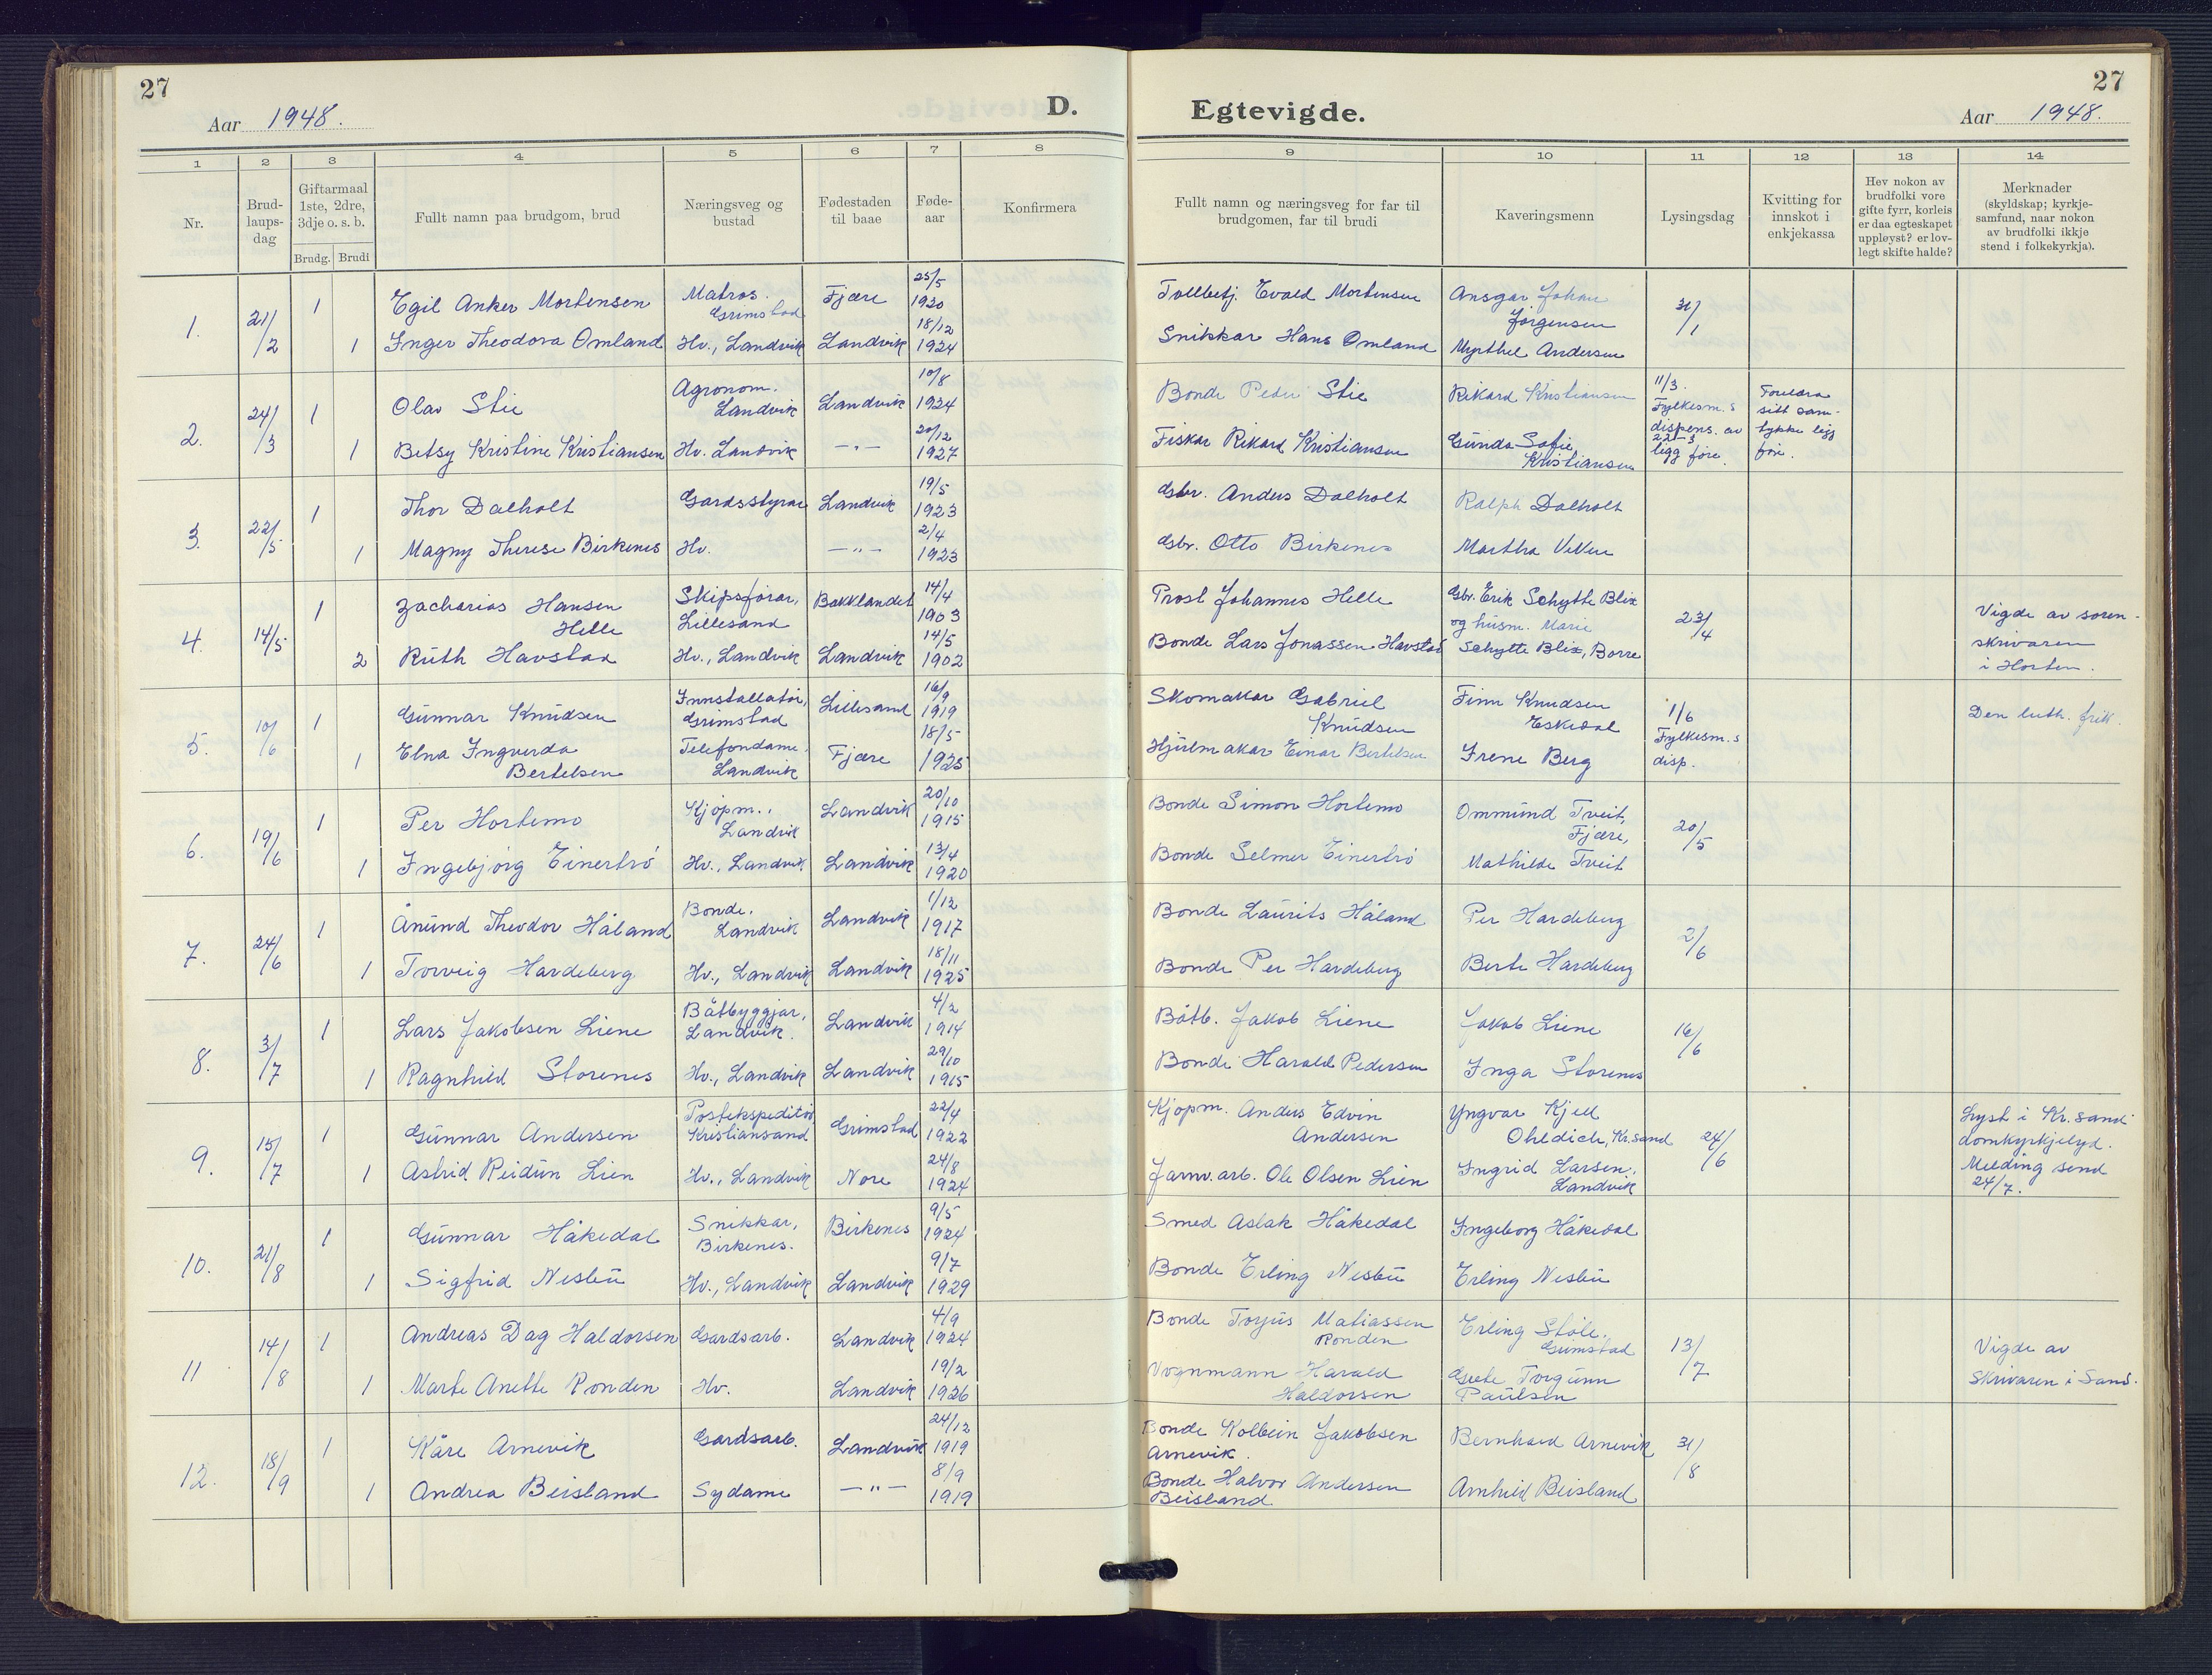 27
Aar 1948.
D.
1 2 3 4 5 6 7 8
Nr.
Brud-
laups-
dag
Giftarmaal
1ste, 2dre,
3dje o. s. b.
Brudg. Brudi
Fullt namn paa brudgom, brud
Næringsveg og
bustad
Fødestaden
til baae
Føde-
aar
Konfirmera
1. 21/2 1 Egil Anker Mortensen Matros. Grimstad Fjære 25/5 1920
1 Inger Theodora Omland Hv., Landvik Landvik 18/12 1924
2. 24/3 1 Olav Stie Agronom. Landvik Landvik 10/8 1924
1 Betsy Kristine Kristiansen Hv. Landvik -"- 20/12 1927
3. 22/5 1 Thor Dalholt Gardsstyrar Landvik 19/5 1923
1 Magny Therese Birkenes Hv. -"- 2/4 1923
4. 14/5 1 Zacharias Hansen Helle Skipsførar, Lillesand Bakklandet 14/4 1903
2 Ruth Havstad Hv., Landvik Landvik 14/5 1902
5. 10/6 1 Gunnar Knudsen Innstallatør, Grimstad Lillesand 16/9 1919
1 Elna Ingverda Bertelsen Telefondame. Landvik Fjære 18/5 1925
6. 19/6 1 Per Hortemo Kjøpm., Landvik Landvik 20/10 1915
1 Ingebjørg Einertrø Hv., Landvik Landvik 13/4 1920
7. 24/6 1 Ånund Theodor Håland Bonde. Landvik Landvik 1/12 1917
1 Torveig Hardeberg Hv., Landvik Landvik 18/11 1925
8. 3/7 1 Lars Jakobsen Liene Båtbyggjar, Landvik. Landvik 4/2 1914
1 Ragnhild Storenes Hv., Landvik Landvik 29/10 1915
9. 15/7 1 Gunnar Andersen Postekspeditør Kristiansand Grimstad 22/4 1922
1 Astrid Reidun Lien Hv., Landvik Nore 24/8 1924
10. 21/8 1 Gunnar Håkedal Snikkar, Birkenes. Birkenes 9/5 1924
1 Sigfrid Nesbu Hv., Landvik Landvik 9/7 1929
11 14/8 1 Andreas Dag Haldorsen Gardsarb. Landvik 4/9 1924
1 Marte Anette Ronden Hv. Landvik 19/2 1926
12. 18/9 1 Kåre Arnevik Gardsarb. Landvik 24/12 1919
1 Andrea Beisland Sydame -"- 8/9 1919
27
Egtevigde.
Aar 1948.
9 10 11 12 13 14
Fullt namn og næringsveg for far til
brudgomen, far til brudi
Kaveringsmenn
Lysingsdag
Kvitting for
innskot i
enkjekassa
Hev nokon av
brudfolki vore
gifte fyrr, korleis
er daa egteskapet
uppløyst? er lov-
legt skifte halde?
Merknader
(skyldskap; kyrkje-
samfund, naar nokon
av brudfolki ikkje
stend i folkekyrkja).
Tollbetj. Evald Mortensen Ansgar Johan Jørgensen 31/1
Snikkar Hans Omland Myrthel Andersen
Bonde Peder Stie Rikard Kristiansen 11/3. Fylkesm.s dispens. av 22-3 ligg føre. Foreldra sitt sam- tykke ligg føre.
Fiskar Rikard Kristiansen Gunda Sofie Kristiansen
Gbr. Anders Dalholt Ralph Dalholt
Gbr. Otto Birkenes Martha
Prost Johannes Helle Gbr. Erik Schytte Blix og husm. Marie 23/4 Vigde av soren-
Bonde Lars Jonassen Havstad Schytte Blix, Borre skrivaren i Horten.
Skomakar Gabriel Knudsen Finn Knudsen Eskedal 1/6 Fylkesm.s disp. Den luth. frik.
Hjulmakar Einar Bertelsen Irene Berg
Bonde Simon Hortemo Ommund Tveit, Fjære, 20/5
Bonde Selmer Einertrø Mathilde Tveit
Bonde Laurits Håland Per Hardeberg 2/6
Bonde Per Hardeberg Berte Hardeberg
Båtb. Jakob Liene Jakob Liene 16/6
Bonde Harald Pedersen Inga Storenes
Kjøpm. Anders Edvin Andersen Yngvar Kjell Ohldich, Kr.sand 24/6 Lyst i Kr.sand domkyrkjelyd.
Jarnv.arb. Ole Olsen Lien Ingrid Larsen, Landvik Melding send 24/7.
Smed Aslak Håkedal Ingeborg Håkedal
Bonde Erling Nesbu Erling Nesbu
Bonde Torjus Matiassen Ronden Erling Støle. Grimstad 13/7 Vigde av
Vognmann Harald Haldorsen Grete Torgunn Paulsen Skrivaren i Sand.
Bonde Kolbein Jakobsen Arnevik. Bernhard Arnevik 31/8
Bonde Halvor Andersen Beisland Arnhild Beisland